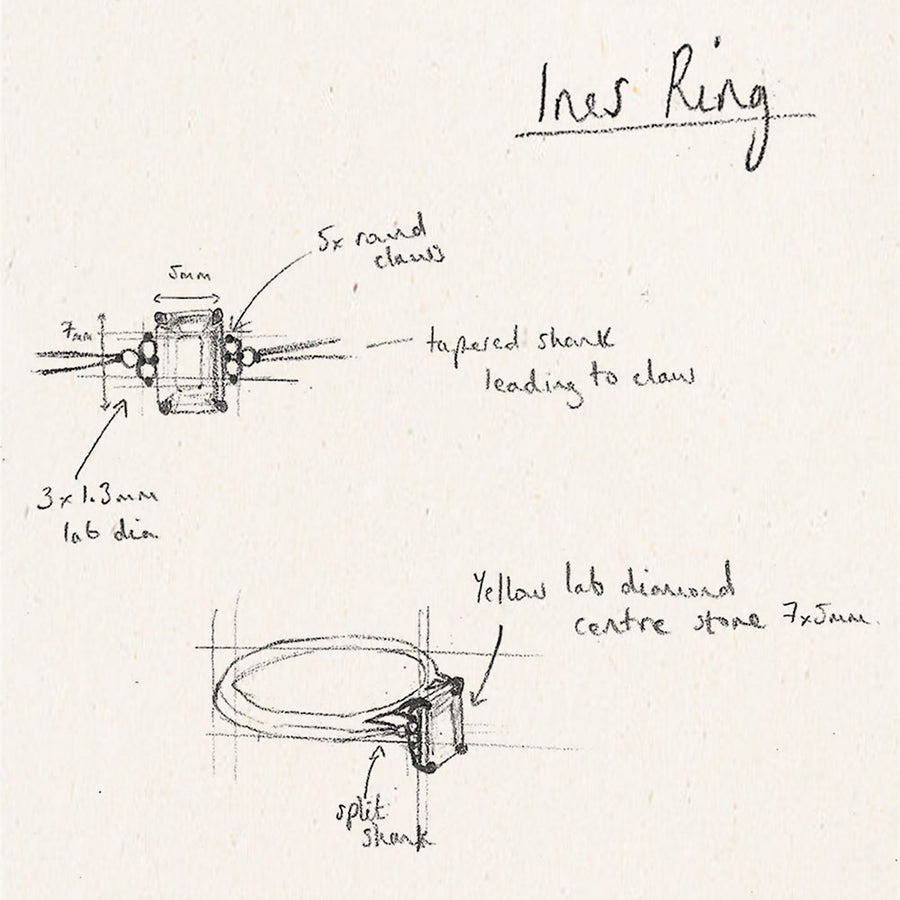 Ines Ring
5x round
claws
5mm
7mm
tapered shank
leading to claw
3x1.3mm
lab dia.
Yellow lab diamond
centre stone 7x5mm.
split
shank